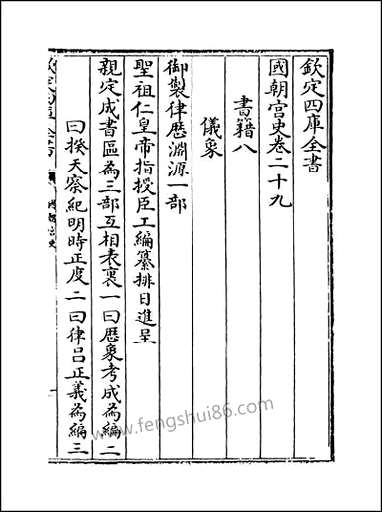 欽定四庫全書
國朝宮史卷二十九
書籍八
儀象
御製律歷淵源一部
聖祖仁皇帝指授臣工編纂排日進呈
親定成書區為三部互相表裏一曰歷象考成為編二
曰揆天察紀明時正度二曰律呂正義為編三
www.fengshui86.com